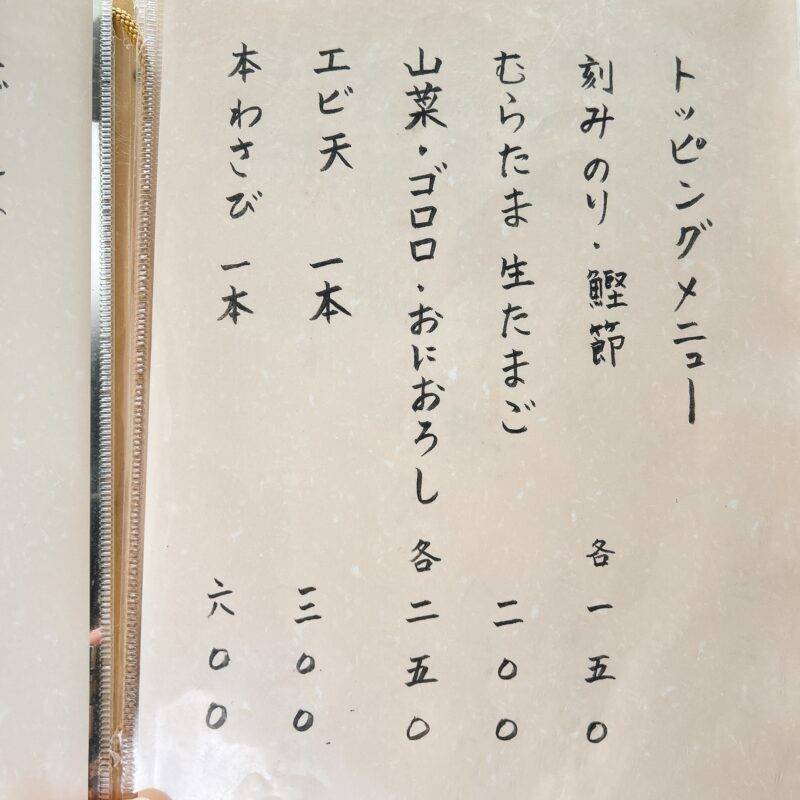 トッピングメニュー
刻みのり・鰹節 各一五〇
むらたま 生たまご 二〇〇
山菜・ゴロロ・おにおろし 各二五〇
エビ天 一本 三〇〇
本わさび 一本 六〇〇